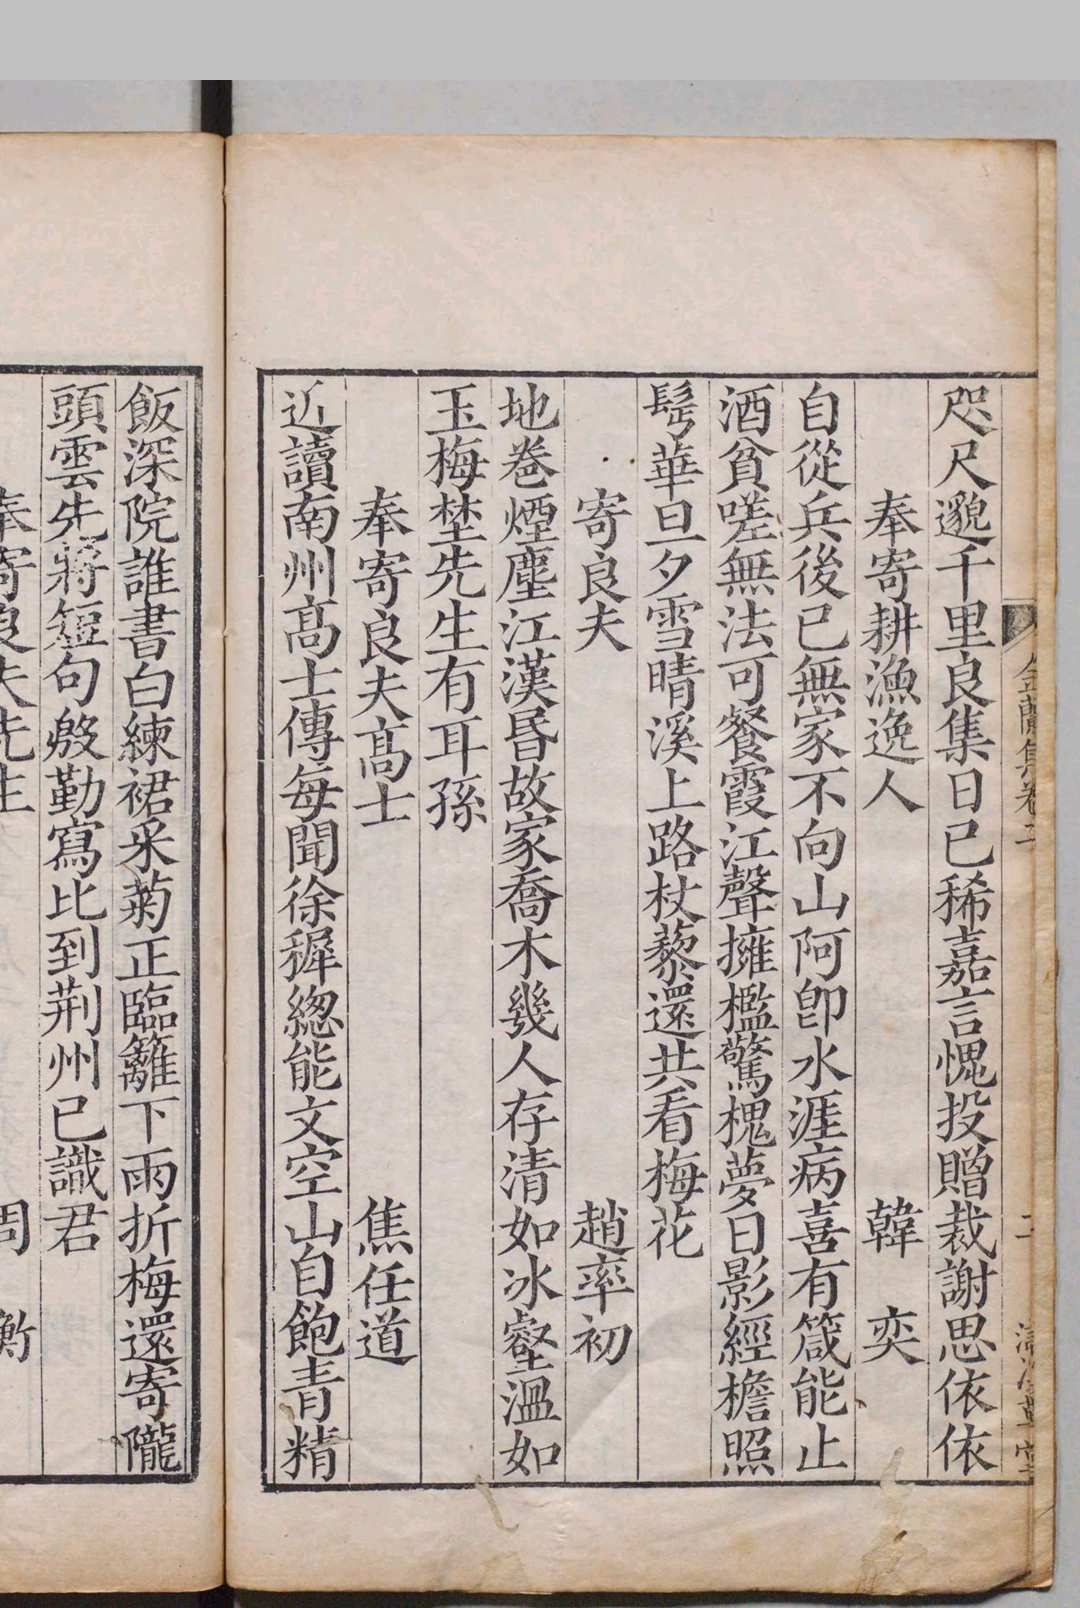 金蘭集卷二
二
咫尺邈千里良集日已稀嘉言愧投贈裁謝思依依
奉寄耕漁逸人 韓 奕
自從兵後已無家不向山阿卽水涯病喜有箴能止
酒貧嗟無法可餐霞江聲擁檻驚槐夢日影經檐照
髩華旦夕雪晴溪上路杖藜還共看梅花
寄良夫 趙率初
地卷煙塵江漢昏故家喬木幾人存清如冰壑溫如
玉梅埜先生有耳孫
奉寄良夫髙士 焦任道
近讀南州髙士傳每聞徐穉總能文空山自飽青精
飯深院誰書白練裙采菊正臨籬下雨折梅還寄隴
頭雲先將短句慇勤寫比到荆州已識君
奉寄良夫先生 周 衡